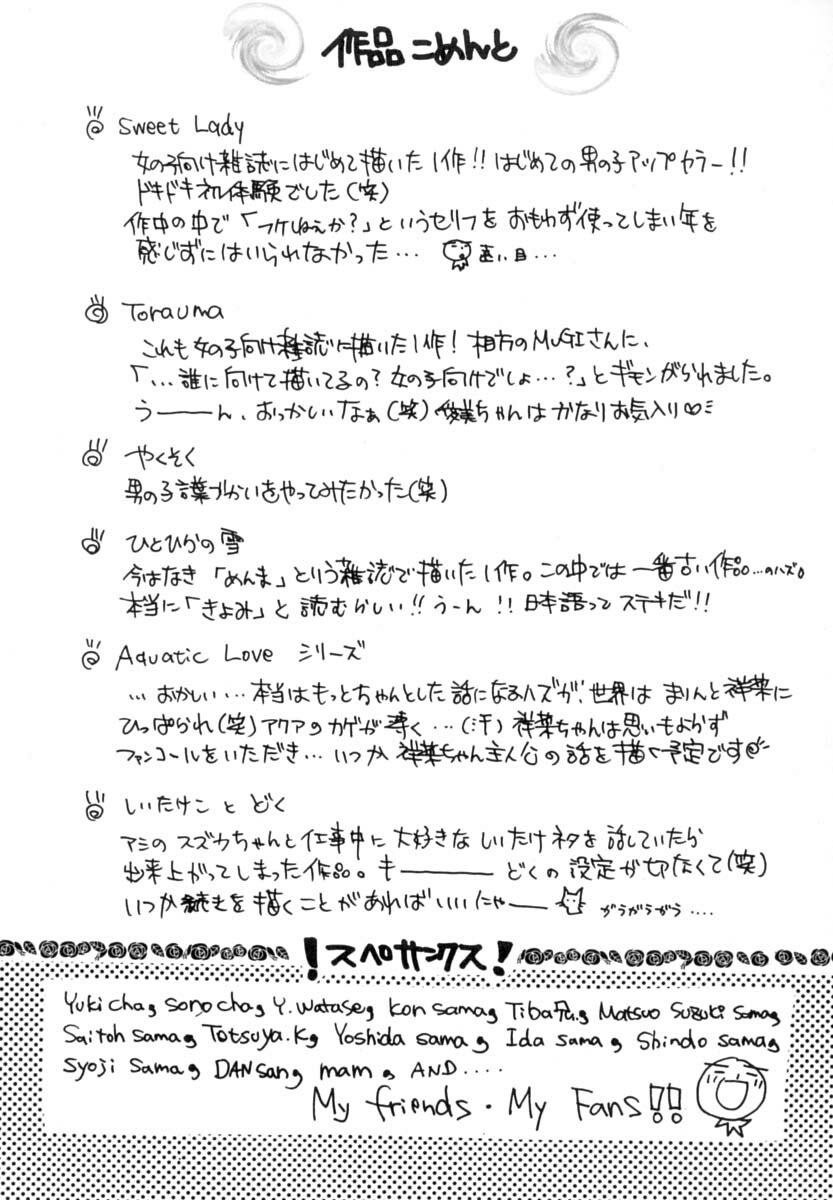 作品こめんと
Sweet Lady
女の子向け雑誌にはじめて描いた1作!! はじめての男の子アップカラー!!
ドキドキネル体験でした(笑)
作中の中で「フケしねえか?」というセリフを おもわず使ってしまい年を
感じずにはいられなかった… 遠い目…
Torauma
これも女の子向け雑誌に描いた1作! 相方のMUGIさんに、
「…誰に向けて描いてるの? 女の子向けでしょ…?」とギモンがられました。
うーーん、おっかしいなぁ(笑) ちゃんはかなりお気入り♡
やくそく
男の子言葉づかいをやってみたかった(笑)
ひとひらの雪
今はなき「めんま」という雑誌で描いた1作。この中では一番古い作品…のハズ。
本当に「きよみ」と読むらしい!! うーん!! 日本語ってステキだ!!
Aquatic Love シリーズ
…おかしい…本当はもっとちゃんとした話になるハズが、世界は まりんと祥菜に
ひっぱられ(笑)アクアのカゲが薄く…(汗) 祥菜ちゃんは思いもよらず
ファンコールをいただき… いつか 祥菜ちゃん主人公の話を描く予定です
しいたけこ と どく
アシの スズカちゃんと仕事中に 大好きな しいたけネタを 話していたら
出来上がってしまった作品。キーーー どくの設定が切なくて(笑)
いつか続きを描くことがあればいいにゃー がうがうがう….
!スペサンクス!
Yuki cha, sono cha, Y. Watase, Kon sama, Tiba兄, Matsuo Suzuki sama,
Saitoh sama, Totsuya.K, Yoshida sama, Ida sama, Shindo sama,
Syoji sama, DAN san, mam, AND....
My friends・My Fans!!